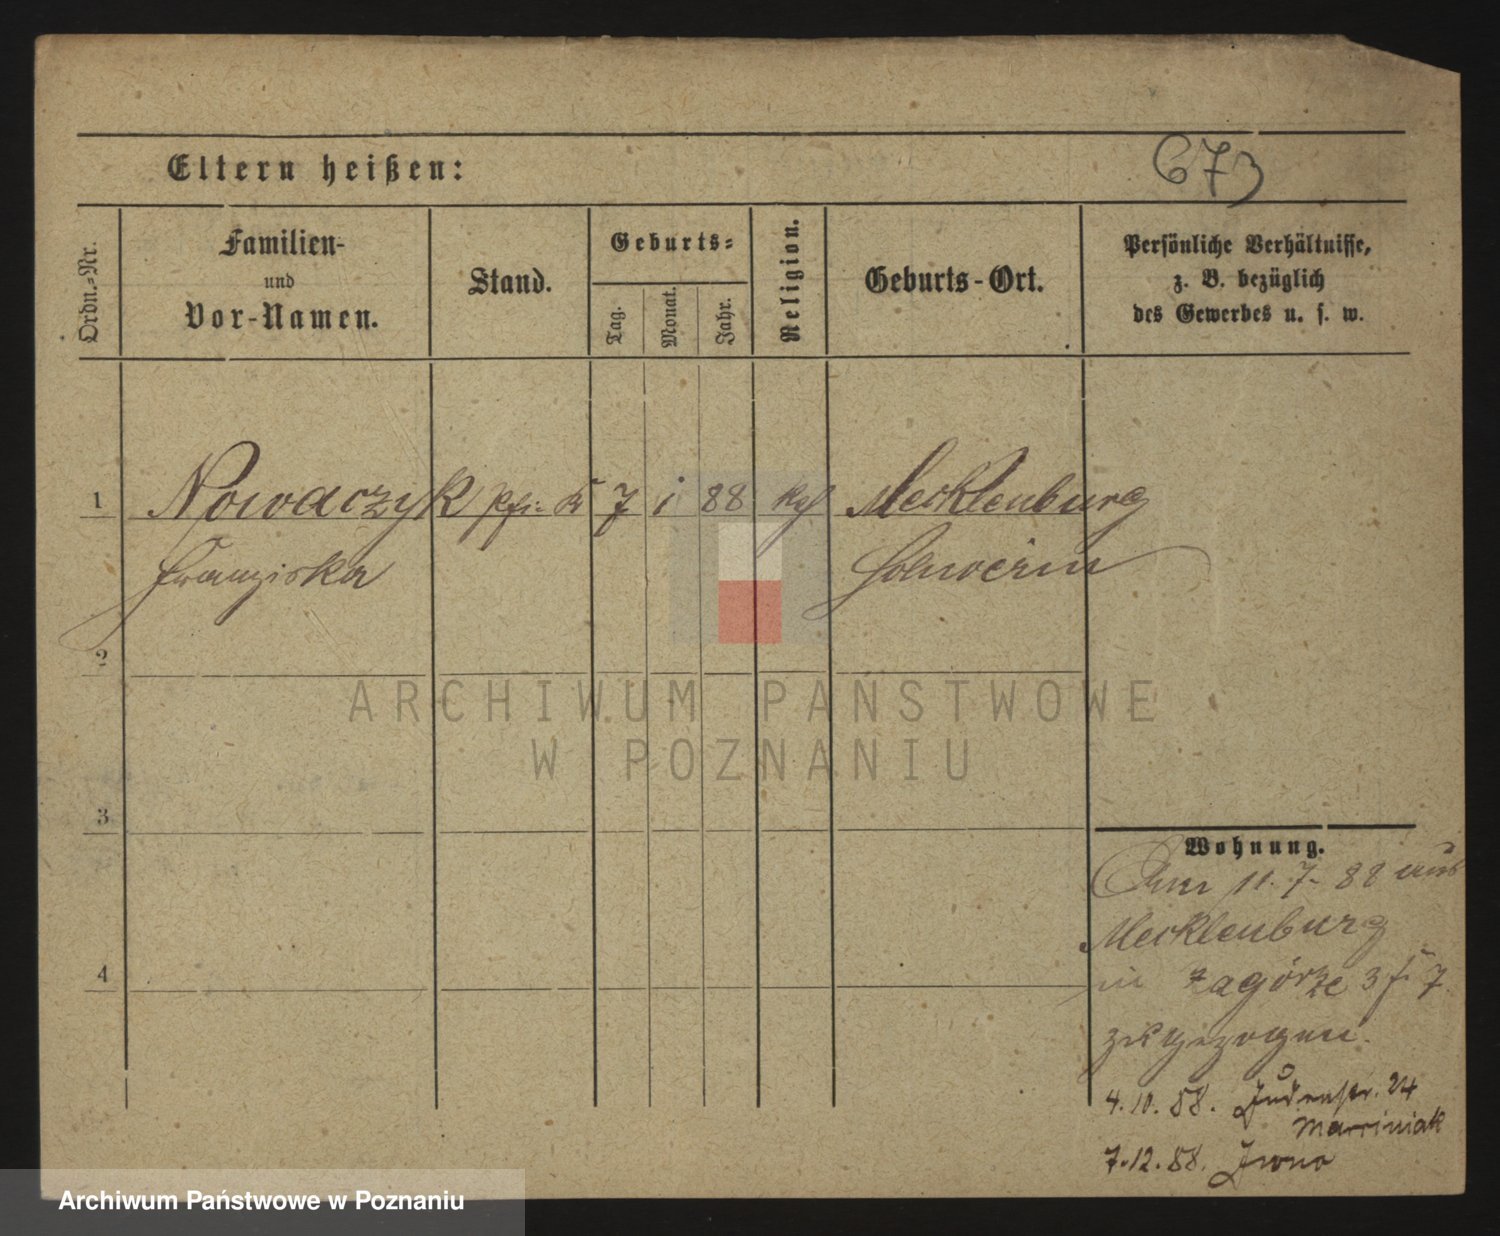 Eltern heißen:
673
Ordn.-Nr.
Familien-
und
Vor-Namen.
Stand.
Geburts-
Tag.
Monat.
Jahr.
Religion.
Geburts-Ort.
Persönliche Verhältnisse,
z. B. bezüglich
des Gewerbes u. s. w.
1 Nowaczyk 7 i 88 Mecklenburg
Franziska Schwerin
2
3
4
Wohnung.
11. 7. 88 aus
Mecklenburg
in Zagórze 3 7.
zugezogen.
4. 10. 88. Judenstr. 24
Marciniak
7. 12. 88.
ARCHIWUM PAŃSTWOWE
W POZNANIU
Archiwum Państwowe w Poznaniu